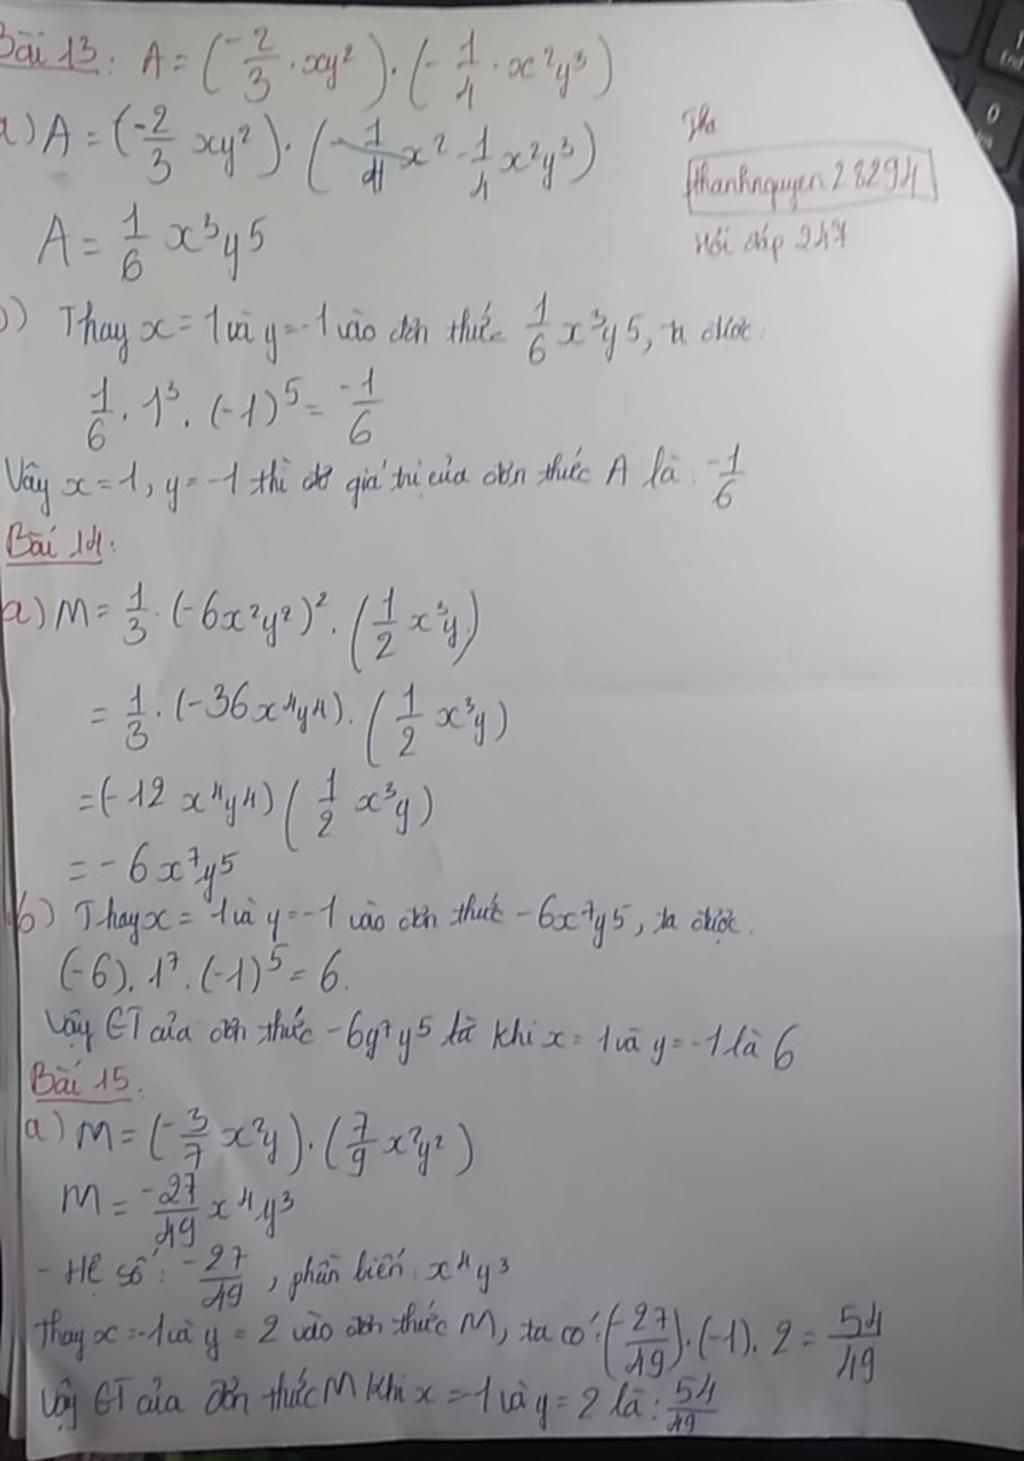 Bài 13: A = (-2/3 . xy²) . (-1/4 . x²y³)
a) A = (-2/3 xy²) . (-1/4 x² -1/4 x²y³)
Tha
thanhnguyen28294
Hỏi đáp 247
A = 1/6 x³y5
b) Thay x = 1 và y = -1 vào đơn thức 1/6 x³y5, ta được:
1/6 . 1³ . (-1)⁵ = -1/6
Vậy x = 1, y = -1 thì giá trị của đơn thức A là: -1/6
Bài 14:
a) M = 1/3 . (-6x²y²)² . (1/2 x³y)
= 1/3 . (-36x⁴y⁴) . (1/2 x³y)
= (-12 x⁴y4) (1/2 x³y)
= -6x⁷y5
b) Thay x = 1 và y = -1 vào đơn thức -6x⁷y5, ta được.
(-6). 1⁷. (-1)⁵ = 6.
Vậy GT của đơn thức -6y⁷y5 là khi x = 1 và y = -1 là 6
Bài 15.
a) M = (-3/7 x²y) . (7/9 x²y²)
M = -27/49 x⁴y³
- Hệ số: -27/49, phần biến: x⁴y³
Thay x = -1 và y = 2 vào đơn thức M, ta có: (-27/49) . (-1). 2 = 54/49
Vậy GT của đơn thức M khi x = -1 và y = 2 là: 54/49